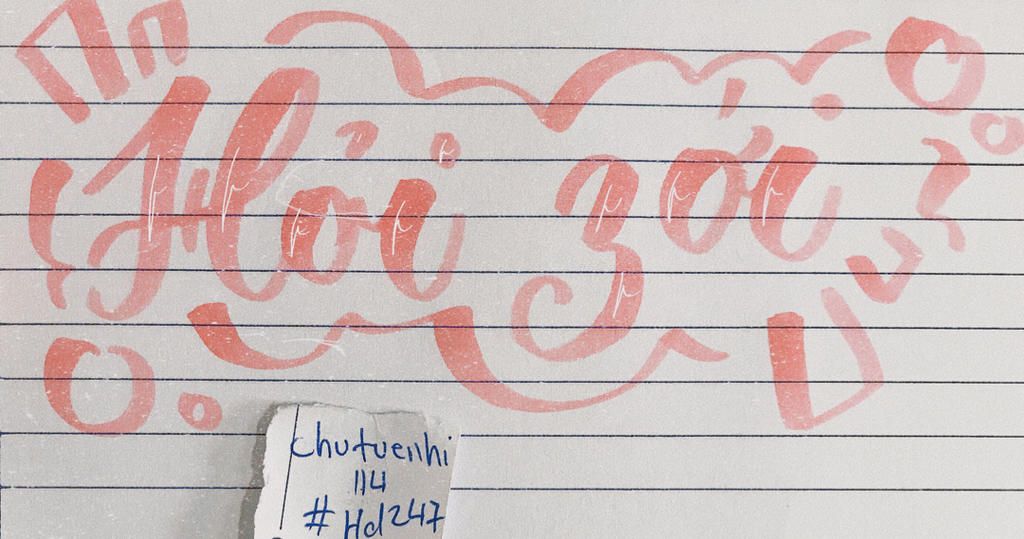 Hỏi zới
chutuenhi
114
#Hd247